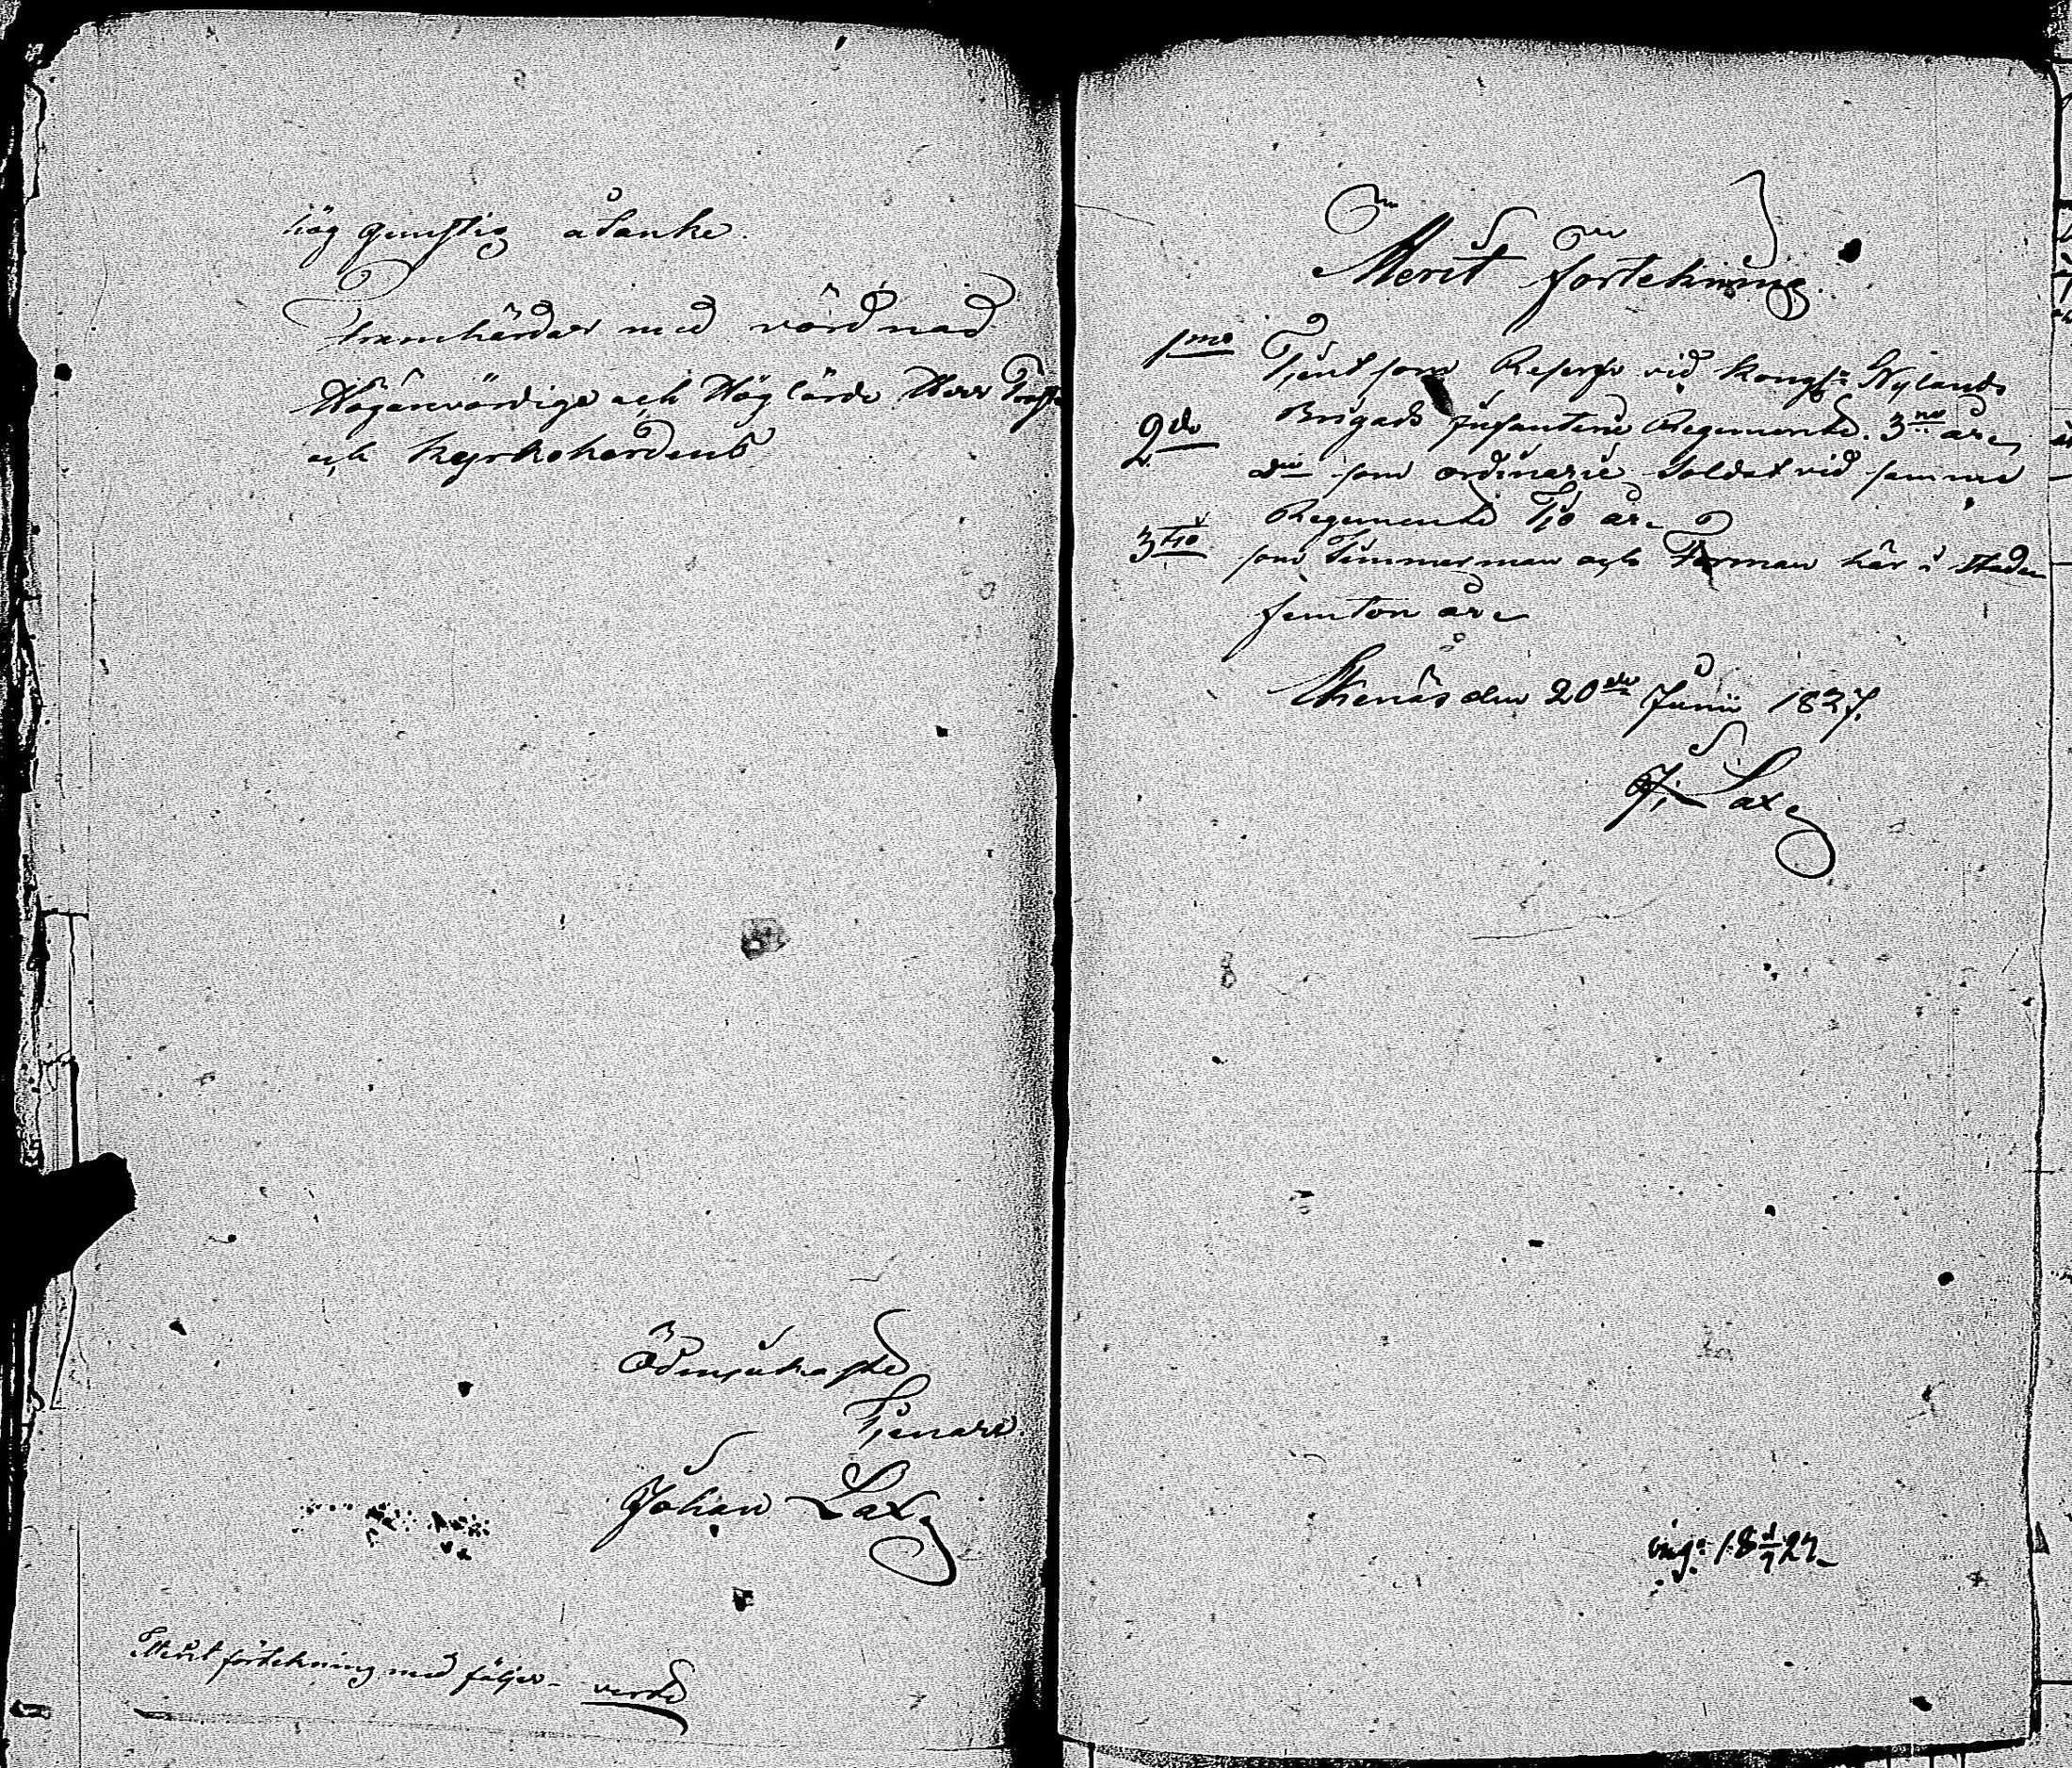 hög gunstig åtanke.
Framhärdar med vördnad
Högärevördige och Höglärde Herr
och Kyrkoherdens
Ödmjukaste
Tjenare.
Johan Lax
Merit förtekning med följer verte
Merit förtekning.
1mo Tjent som Reserfe vid Kongl: Nylands
Brigads Infanterie Regemente. 3ne åre
2do som ordinarie Soldat vid samma
Regemente Tjo åre
3tio som Timmerman och Forman här i Staden
femton åre
Ekenäs den 20de Junii 1827.
J: Lax